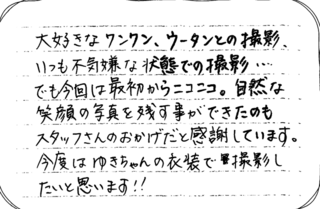 大好きなワンワン、ウータンとの撮影、
いつも不気嫌な状態での撮影…
でも今回は最初からニコニコ。自然な
笑顔の写真を残す事ができたのも
スタッフさんのおかげだと感謝しています。
今度はゆきちゃんの衣装で撮影し
たいと思います!!